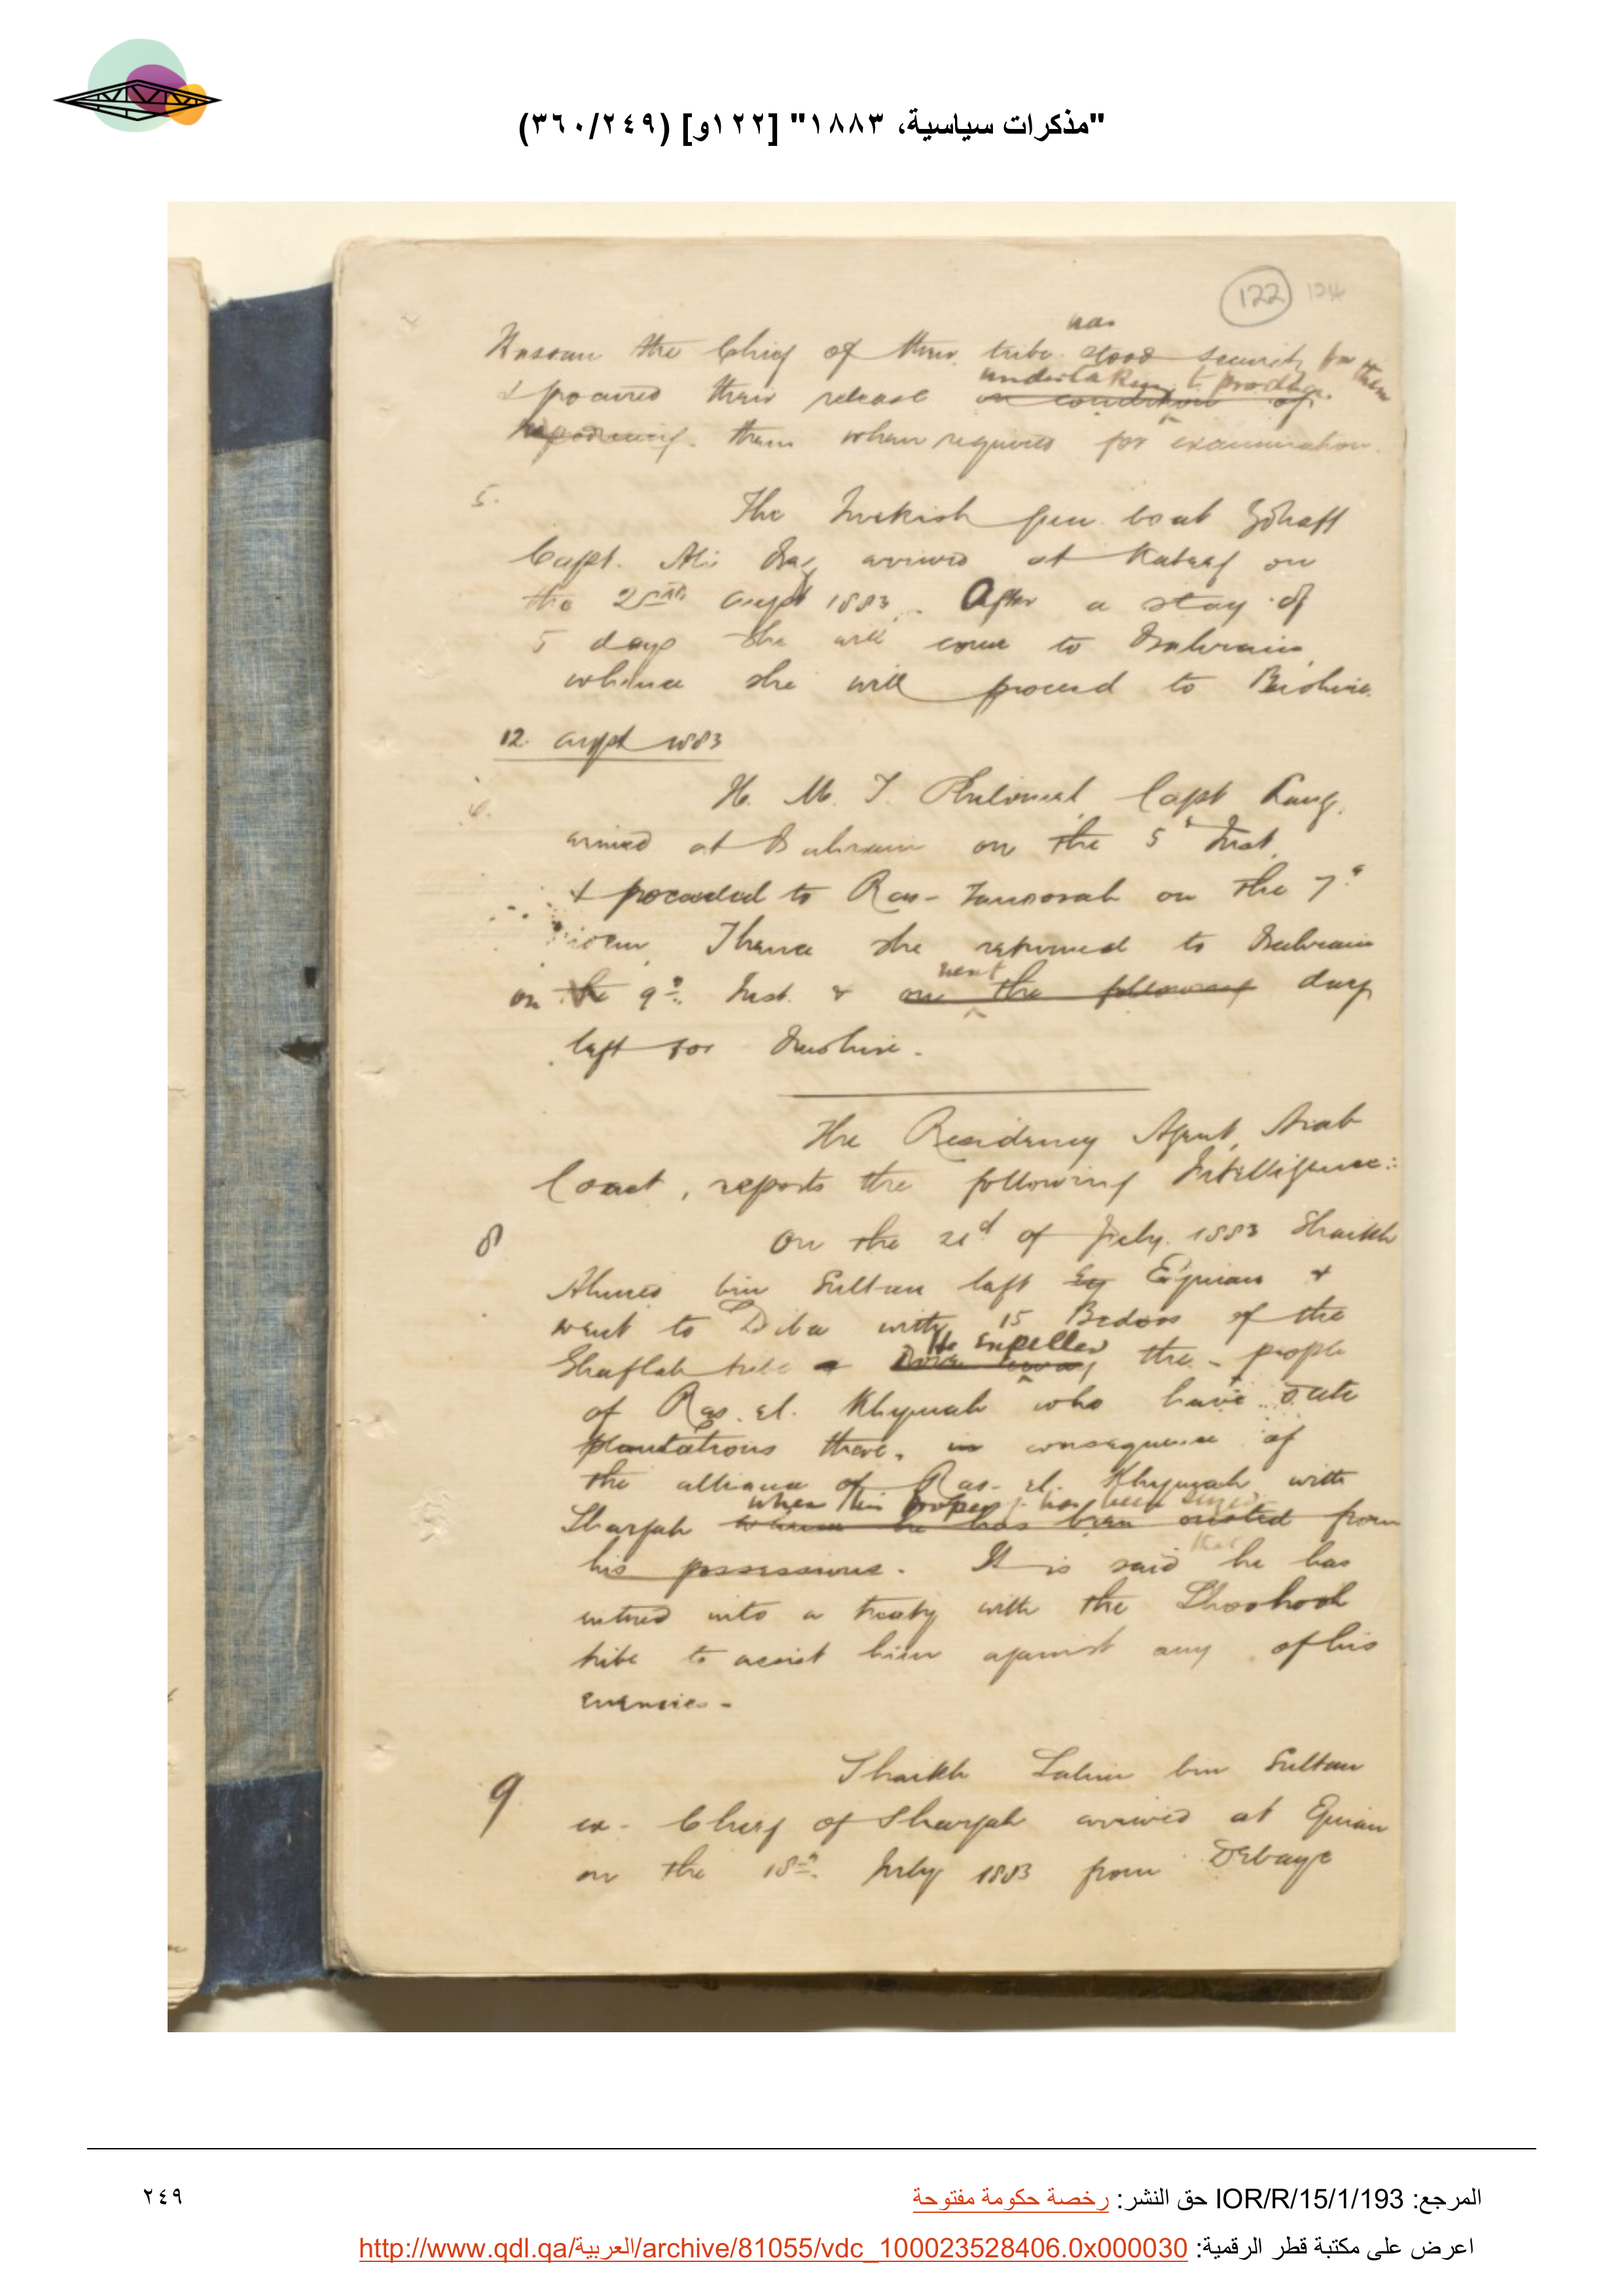 "مذكرات سياسية، ١٨٨٣" [١٢٢و] (٣٦٠/٢٤٩)
122 124
has
Hassan the Chief of their tribe stood security for them
undertaking to produce
& procured their release on condition of
them when required for examination.
5.
The Turkish gun boat Zohaff
Capt. Ali Bey arrived at Kateef on
the 2nd augst 1883. After a stay of
5 days she will come to Bahrain,
whence she will proceed to Bushire.
12. augst 1883
H. M. S. Philomel, Capt Lang,
arrived at Bahrain on the 5th Inst.
& proceeded to Ras-Tanoorah on the 7th
idem. Thence she returned to Bahrain
next
on the 9th Inst. & on the following day
left for Bushire.
The Residency Agent, Arab
Coast, reports the following Intelligence:
8
On the 21st of July 1883 Shaikh
Ahmed bin Sultan left Eg Ejman &
went to Diba with 15 Bedoos of the
He expelled
Ghaflah tribe & Drove away the people
of Ras el Khymah who have date
plantations there, in consequence of
the alliance of Ras-el-Khymah with
when this property has been seized
Shargah whence he has been ousted from
that
his possessions. It is said he has
entered into a treaty with the Shoohooh
tribe to assist him against any of his
enemies -
9
Shaikh Salim bin Sultan
ex-Chief of Shargah arrived at Ejman
on the 18th July 1883 from Debaye
المرجع: IOR/R/15/1/193 حق النشر: رخصة حكومة مفتوحة
٢٤٩
اعرض على مكتبة قطر الرقمية: http://www.qdl.qa/العربية/archive/81055/vdc_100023528406.0x000030